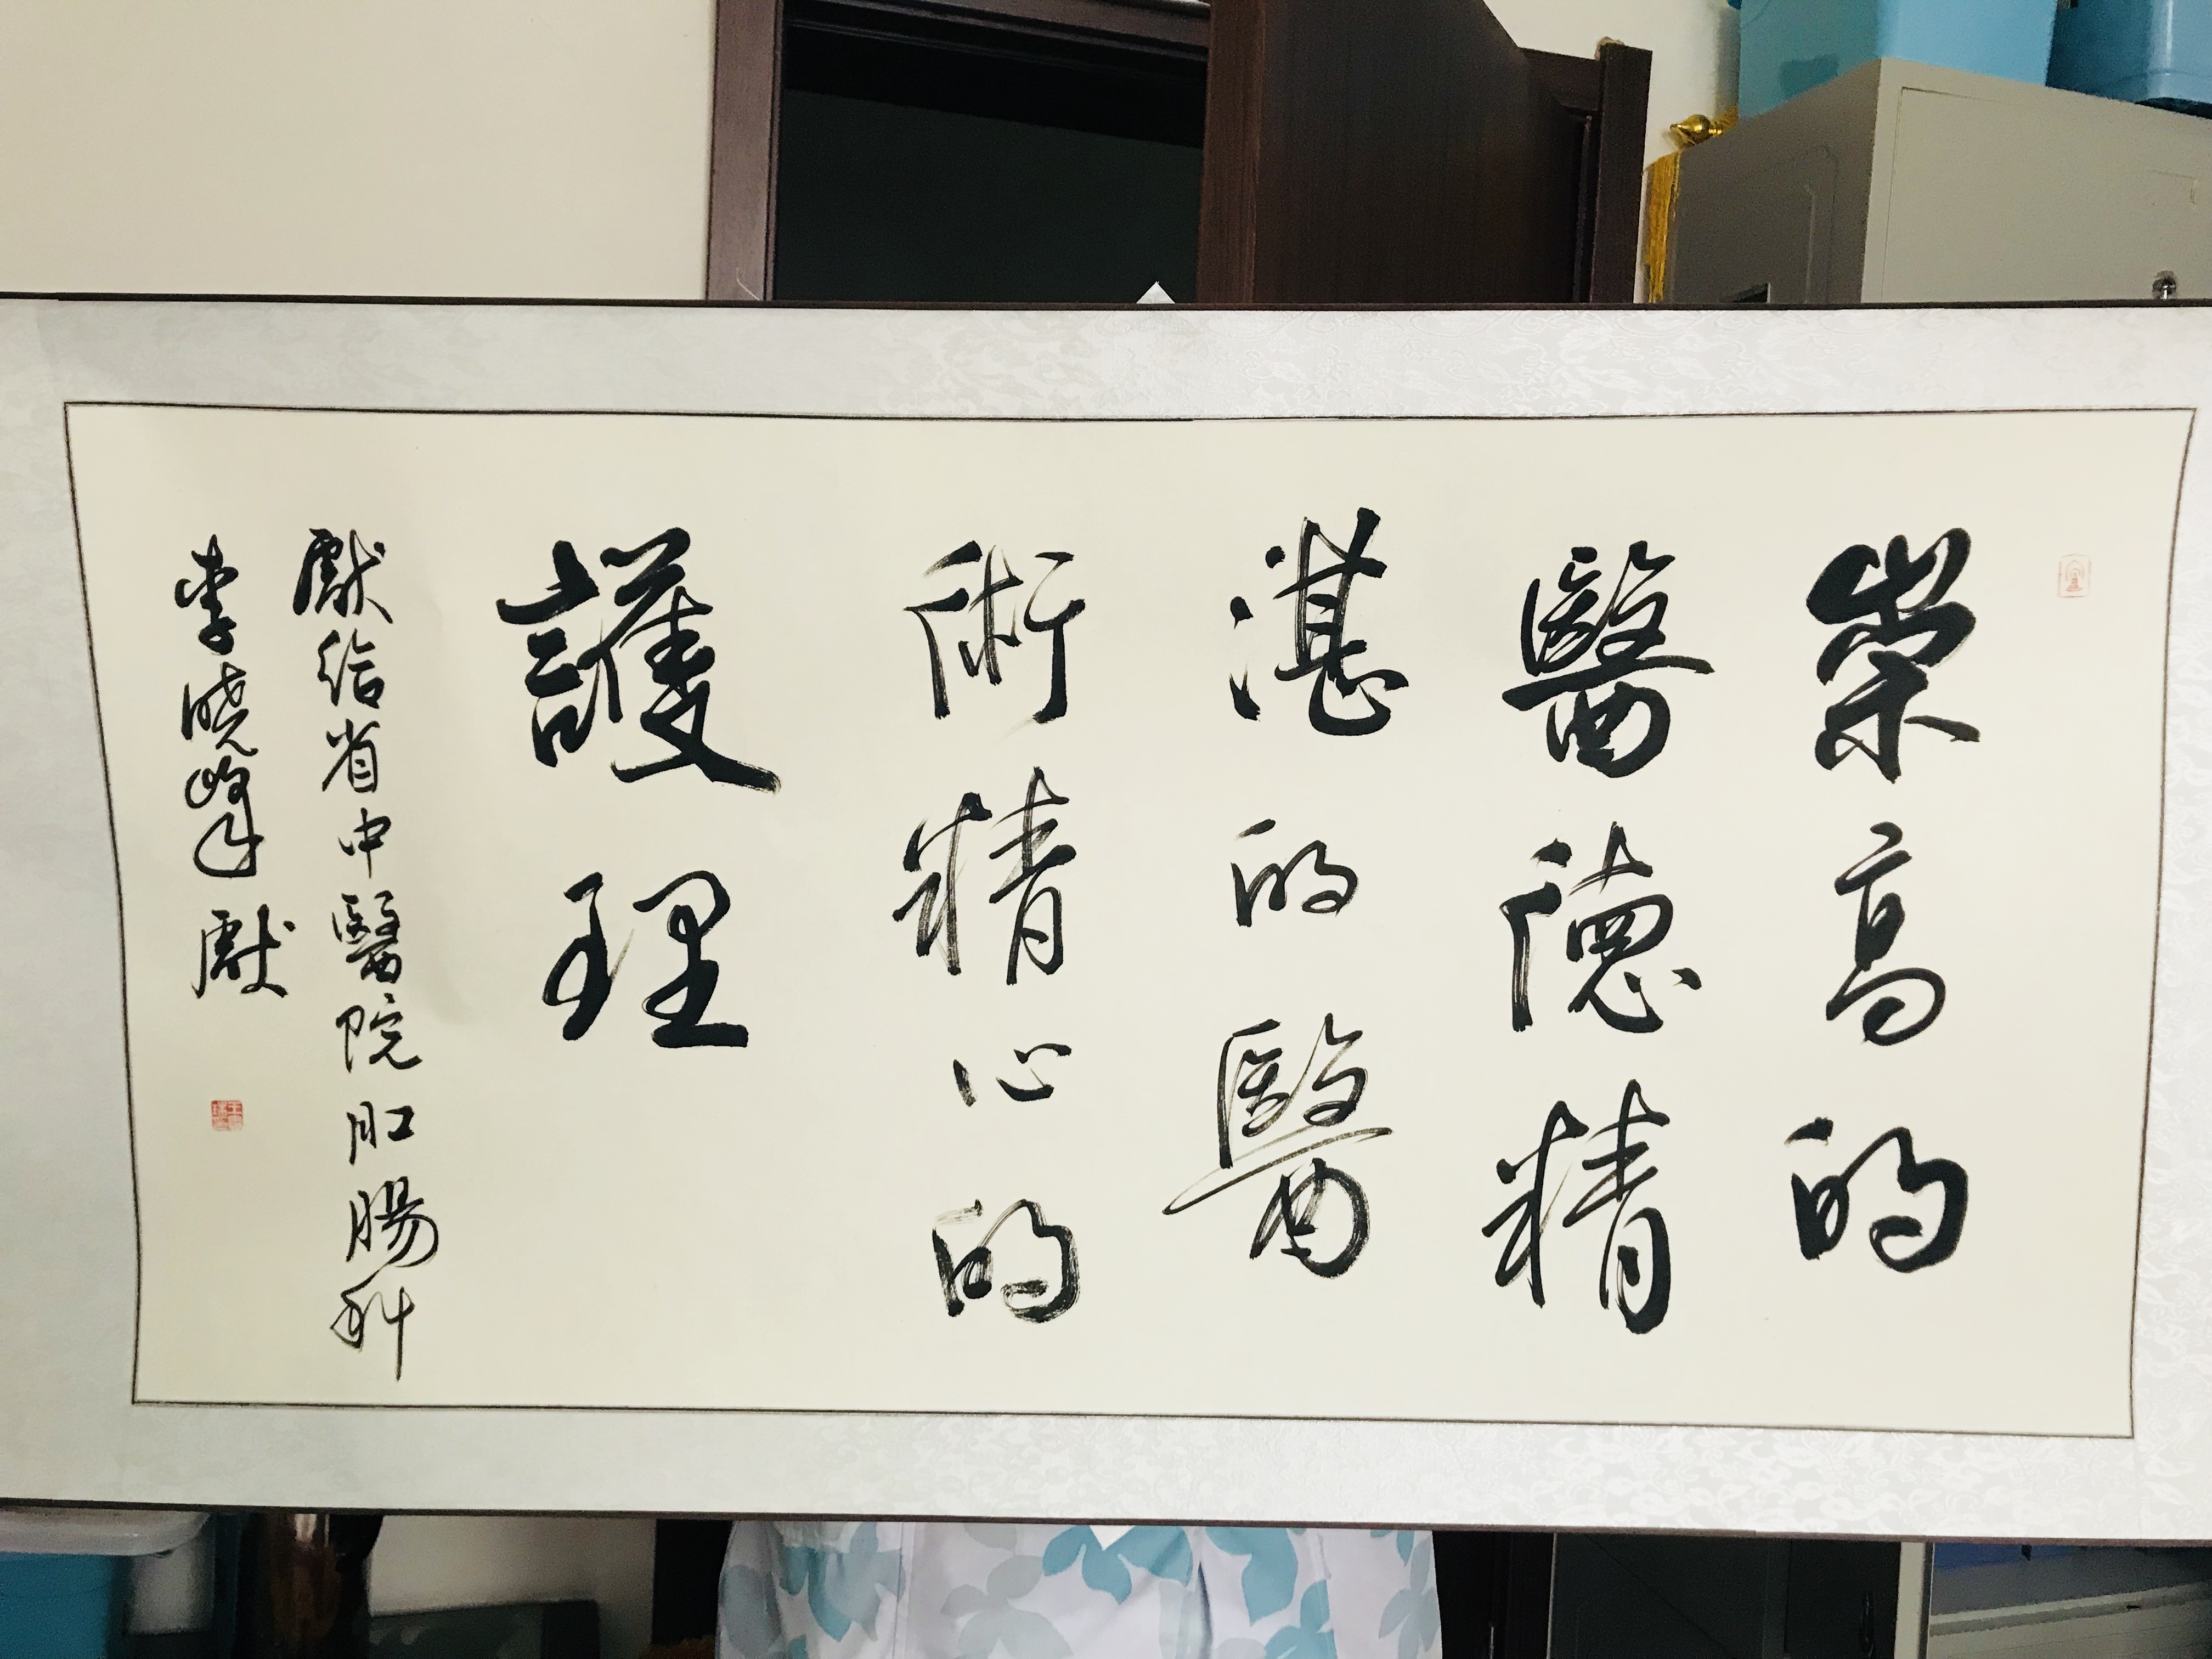 崇高的
醫德精
湛的醫
術精心的
護理
獻给省中醫院肛腸科
李曉峰獻